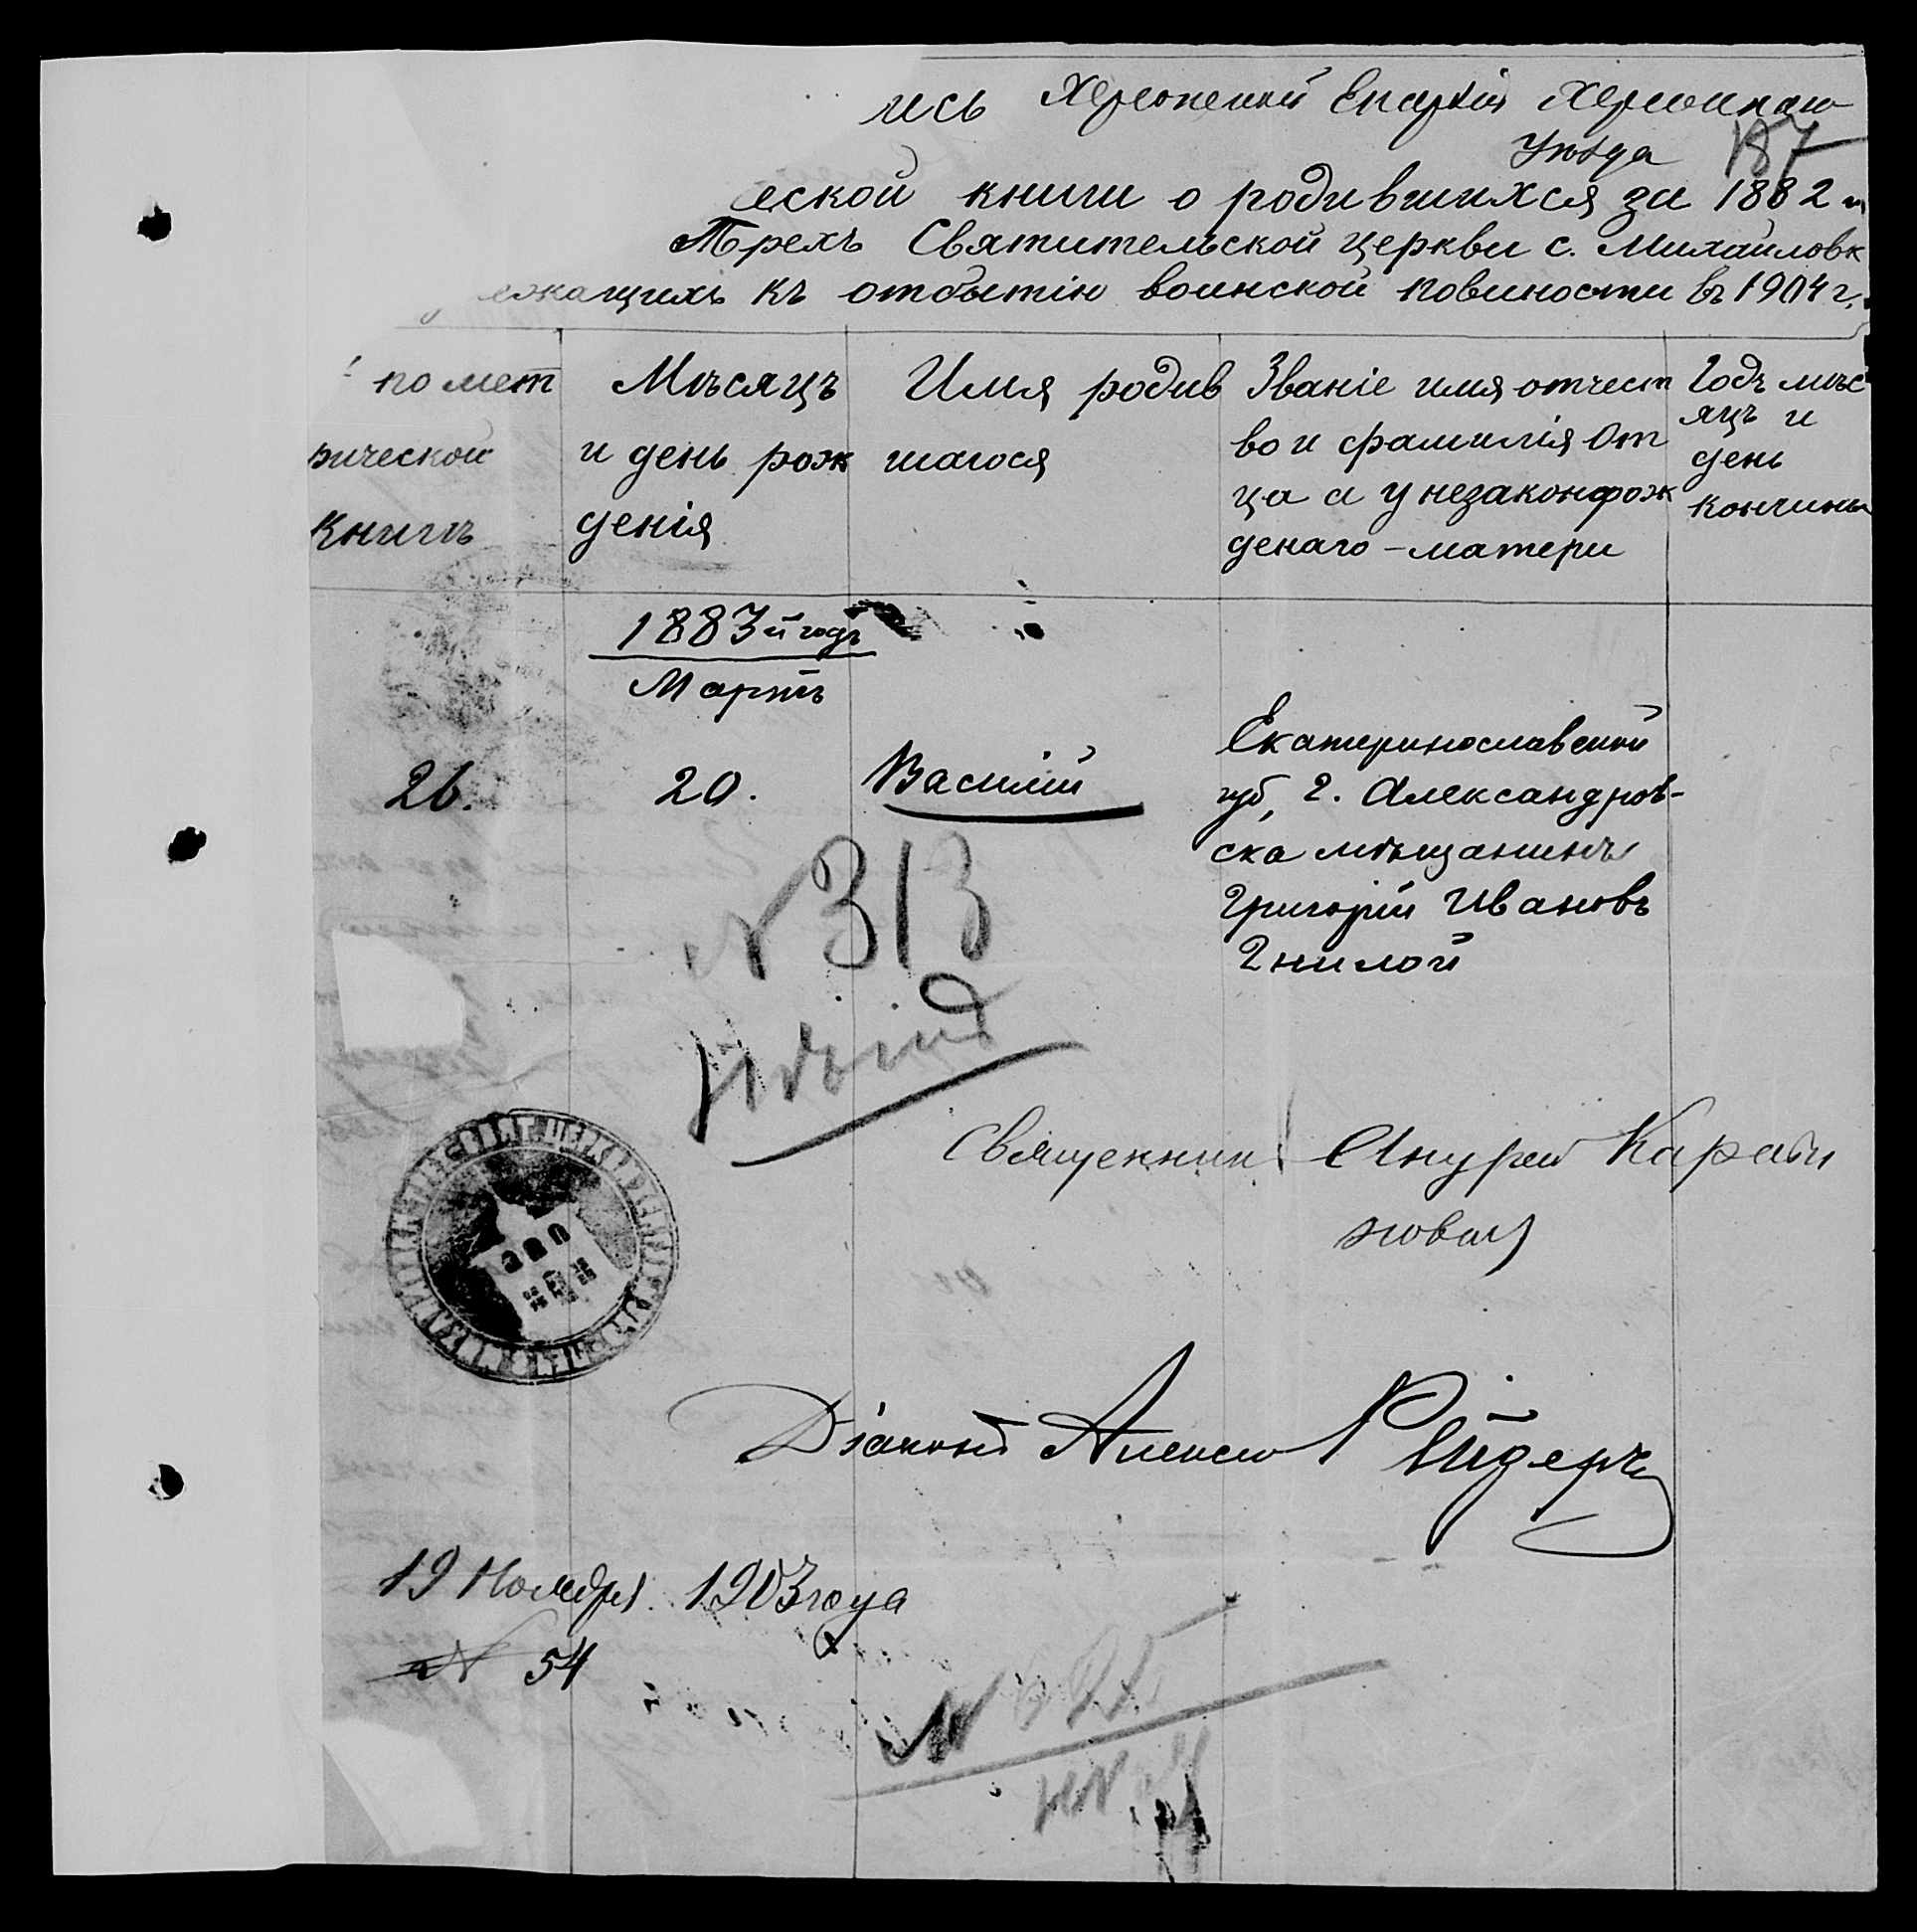 ись Херсонской Епархіи Херсонскаго
Уѣзда 187
еской книги о родившихся за 1882 г
Трехъ Святительской церкви с. Михайловк
ежащихъ къ отбытію воинской повиности въ 1904 г.
по мет
рической
книгѣ
Мѣсяцъ
и день рож
денія
Имя родив
шагося
Званіе имя отчест
во и фамилія От
ца а у незаконорож
денаго - матери
Годъ мѣс
яцъ и
день
кончины
1883й годъ
Мартъ
26. 20. Василій
Екатеринославской
губ, г. Александров-
ска мѣщанинъ
Григорій Ивановъ
Гнилой
N 313
Священникъ Андрей Карази
новъ
Діаконъ Алексей Рейдеръ
19 Ноября 1903 года
N 54